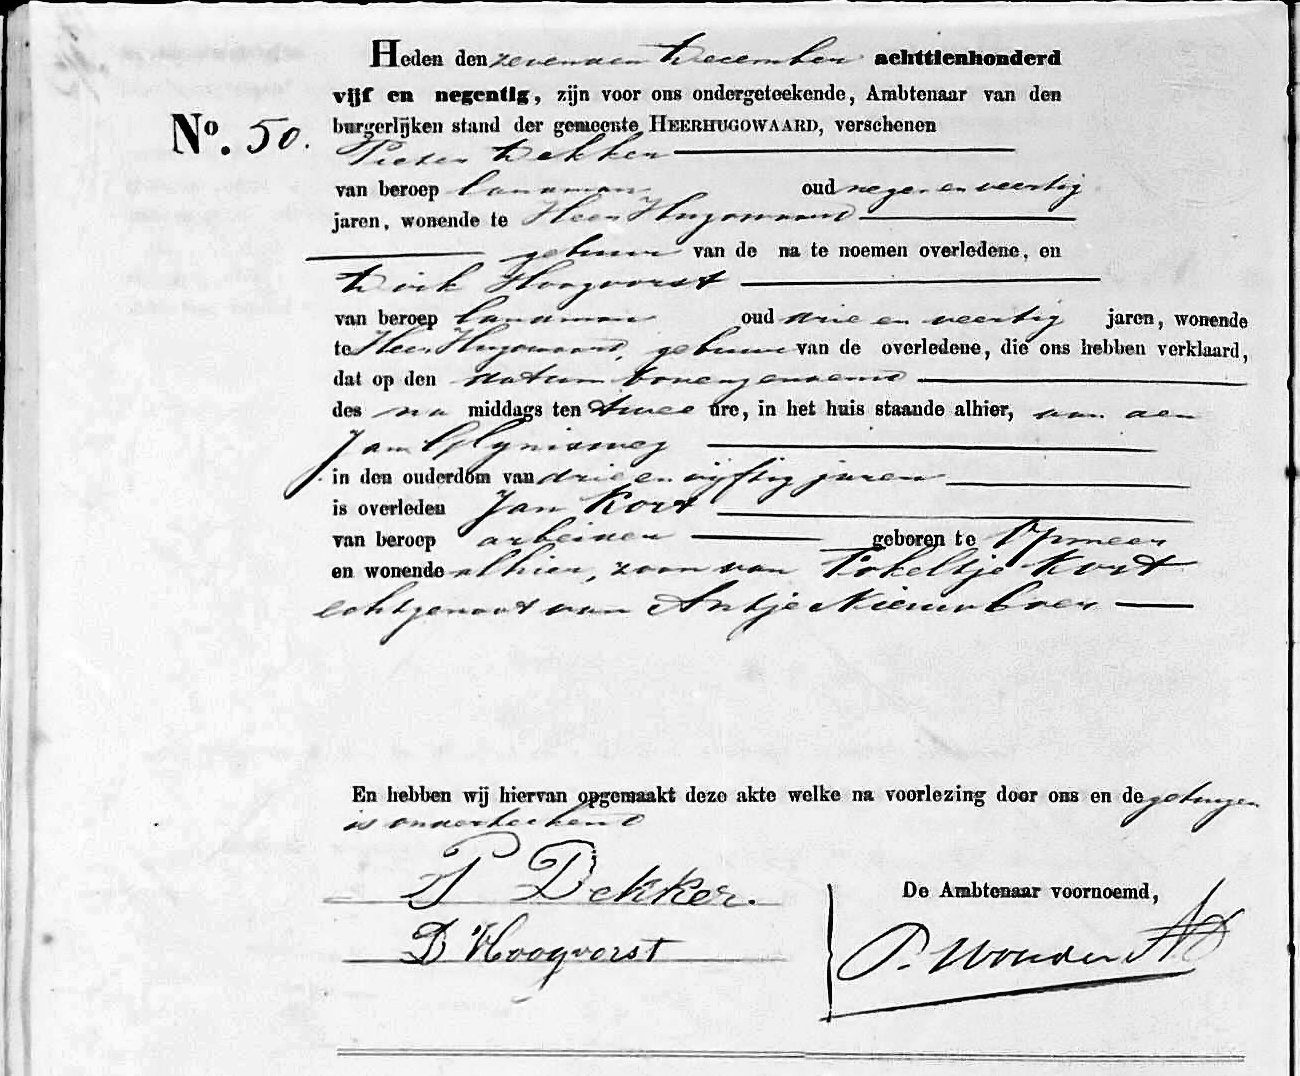 Heden den zevenden December achttienhonderd
vijf en negentig, zijn voor ons ondergeteekende, Ambtenaar van den
No. 50. burgerlijken stand der gemeente HEERHUGOWAARD, verschenen
Pieter Dekker
van beroep landman oud negen en veertig
jaren, wonende te Heer Hugowaard
gebuur van de na te noemen overledene, en
Dirk Hoogvorst
van beroep landman oud drie en veertig jaren, wonende
te Heer Hugowaard, gebuur van de overledene, die ons hebben verklaard,
dat op den datum bovengenoemd
des na middags ten twee ure, in het huis staande alhier, aan den
Jan Glijnisweg
in den ouderdom van drie en vijftig jaren
is overleden Jan Kort
van beroep arbeider geboren te Ypmeer
en wonende alhier, zoon van Kort
echtgenoot van Antje Nieuwboer
En hebben wij hiervan opgemaakt deze akte welke na voorlezing door ons en de getuigen
is onderteekend
P Dekker.
De Ambtenaar voornoemd,
D Hoogvorst
P. Wonder